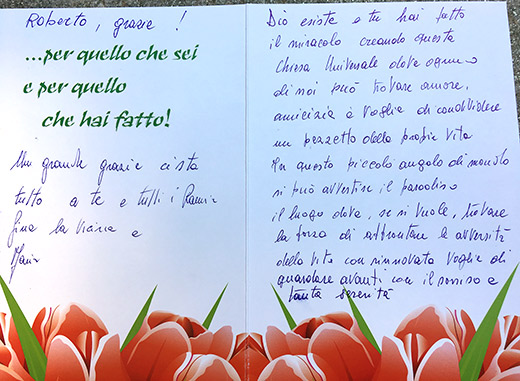 Roberto, grazie !
...per quello che sei
e per quello
che hai fatto!
Un grande grazie ci sta
tutto a te e tutti i
la vicina e
Dio esiste e tu hai fatto
il miracolo creando questa
Chiesa Universale dove ognuno
di noi può trovare amore,
amicizia e voglia di condividere
un pezzetto della propria vita
In questo piccolo angolo di mondo
si può avvertire il paradiso
il luogo dove, se si vuole, trovare
la forza di affrontare le avversità
della vita con rinnovata voglia di
guardare avanti con il sorriso e
tanta serenità